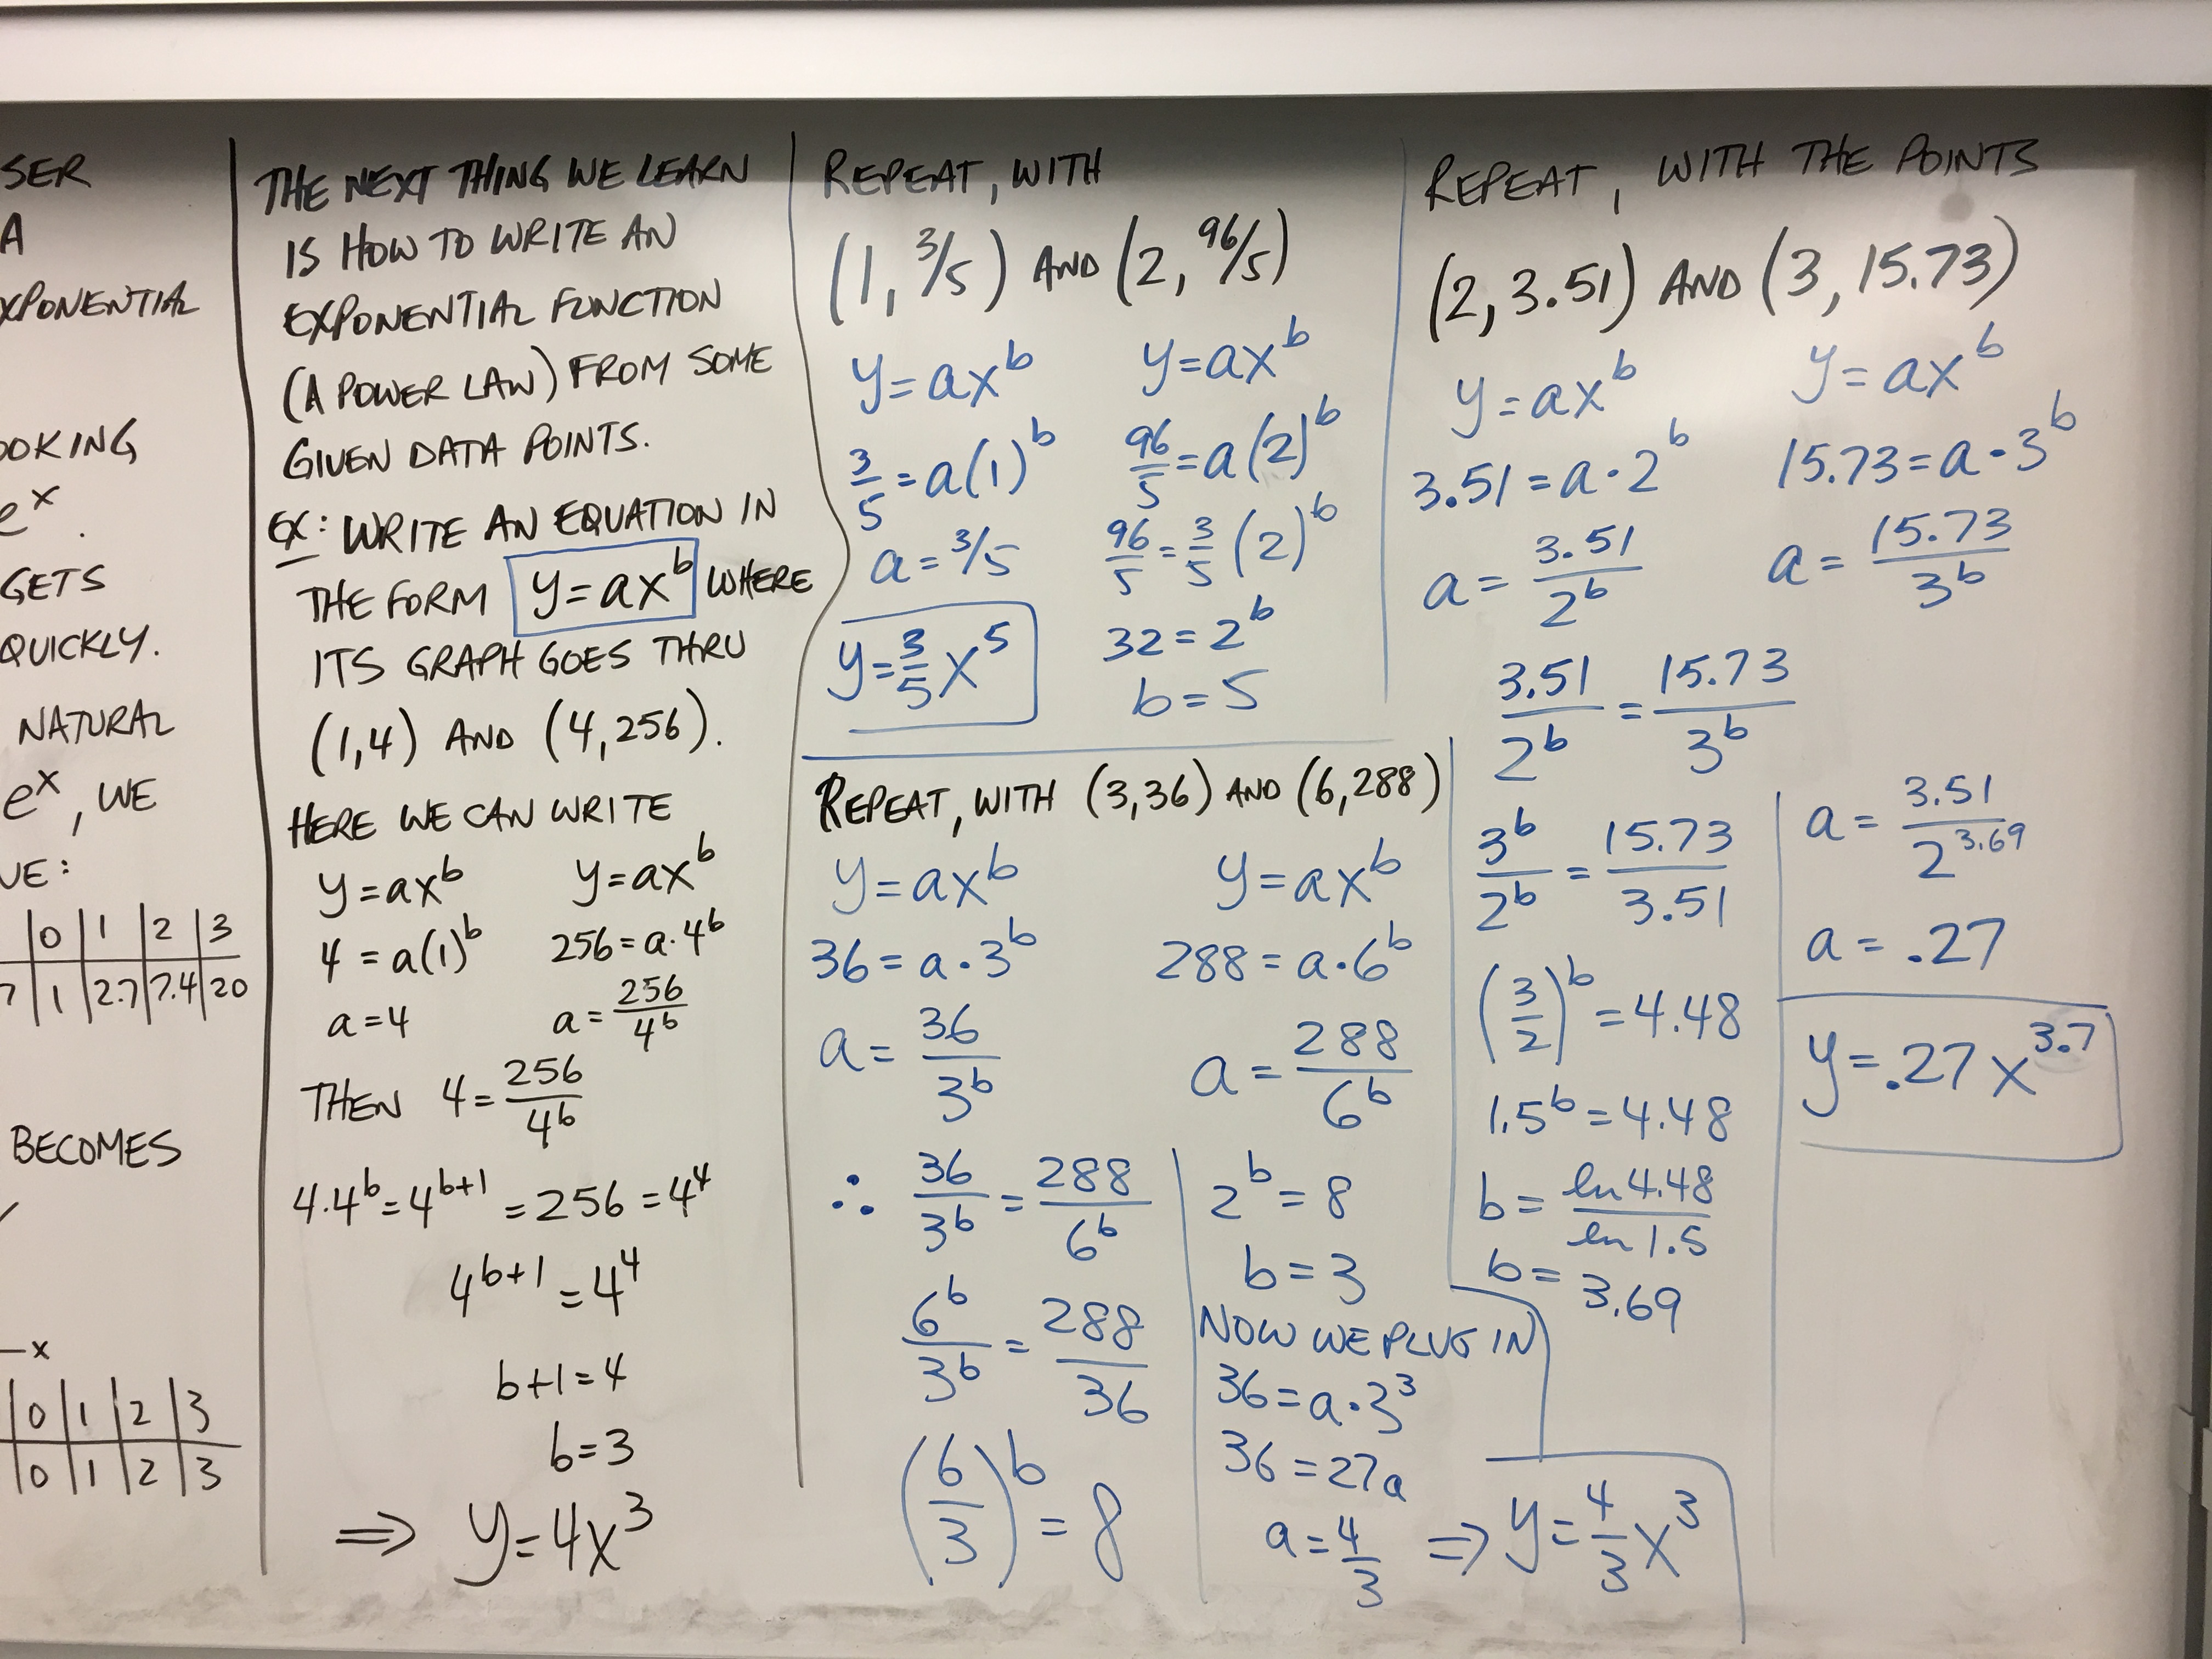 SER
A
XPONENTIAL
OOKING
e^x.
GETS
QUICKLY.
NATURAL
e^x, WE
VE:
0 | 1 | 2 | 3
7 | 1 | 2.7 | 7.4 | 20
BECOMES
-x
0 | 1 | 2 | 3
0 | 1 | 2 | 3
THE NEXT THING WE LEARN
IS HOW TO WRITE AN
EXPONENTIAL FUNCTION
(A POWER LAW) FROM SOME
GIVEN DATA POINTS.
EX: WRITE AN EQUATION IN
THE FORM y=ax^b WHERE
ITS GRAPH GOES THRU
(1,4) AND (4,256).
HERE WE CAN WRITE
y=ax^b y=ax^b
4=a(1)^b 256=a·4^b
a=4 a=256/4^b
THEN 4=256/4^b
4·4^b=4^(b+1)=256=4^4
4^(b+1)=4^4
b+1=4
b=3
⇒ y=4x^3
REPEAT, WITH
(1, 3/5) AND (2, 96/5)
y=ax^b y=ax^b
3/5=a(1)^b 96/5=a(2)^b
a=3/5 96/5=3/5(2)^b
y=3/5x^5 32=2^b
b=5
REPEAT, WITH (3,36) AND (6,288)
y=ax^b y=ax^b
36=a·3^b 288=a·6^b
a=36/3^b a=288/6^b
∴ 36/3^b=288/6^b
6^b/3^b=288/36
(6/3)^b=8
2^b=8
b=3
NOW WE PLUG IN
36=a·3^3
36=27a
a=4/3 ⇒ y=4/3x^3
REPEAT, WITH THE POINTS
(2,3.51) AND (3,15.73)
y=ax^b y=ax^b
3.51=a·2^b 15.73=a·3^b
a=3.51/2^b a=15.73/3^b
3.51/2^b=15.73/3^b
3^b/2^b=15.73/3.51
(3/2)^b=4.48
1.5^b=4.48
b=ln4.48/ln1.5
b=3.69
a=3.51/2^3.69
a=.27
y=.27x^3.7